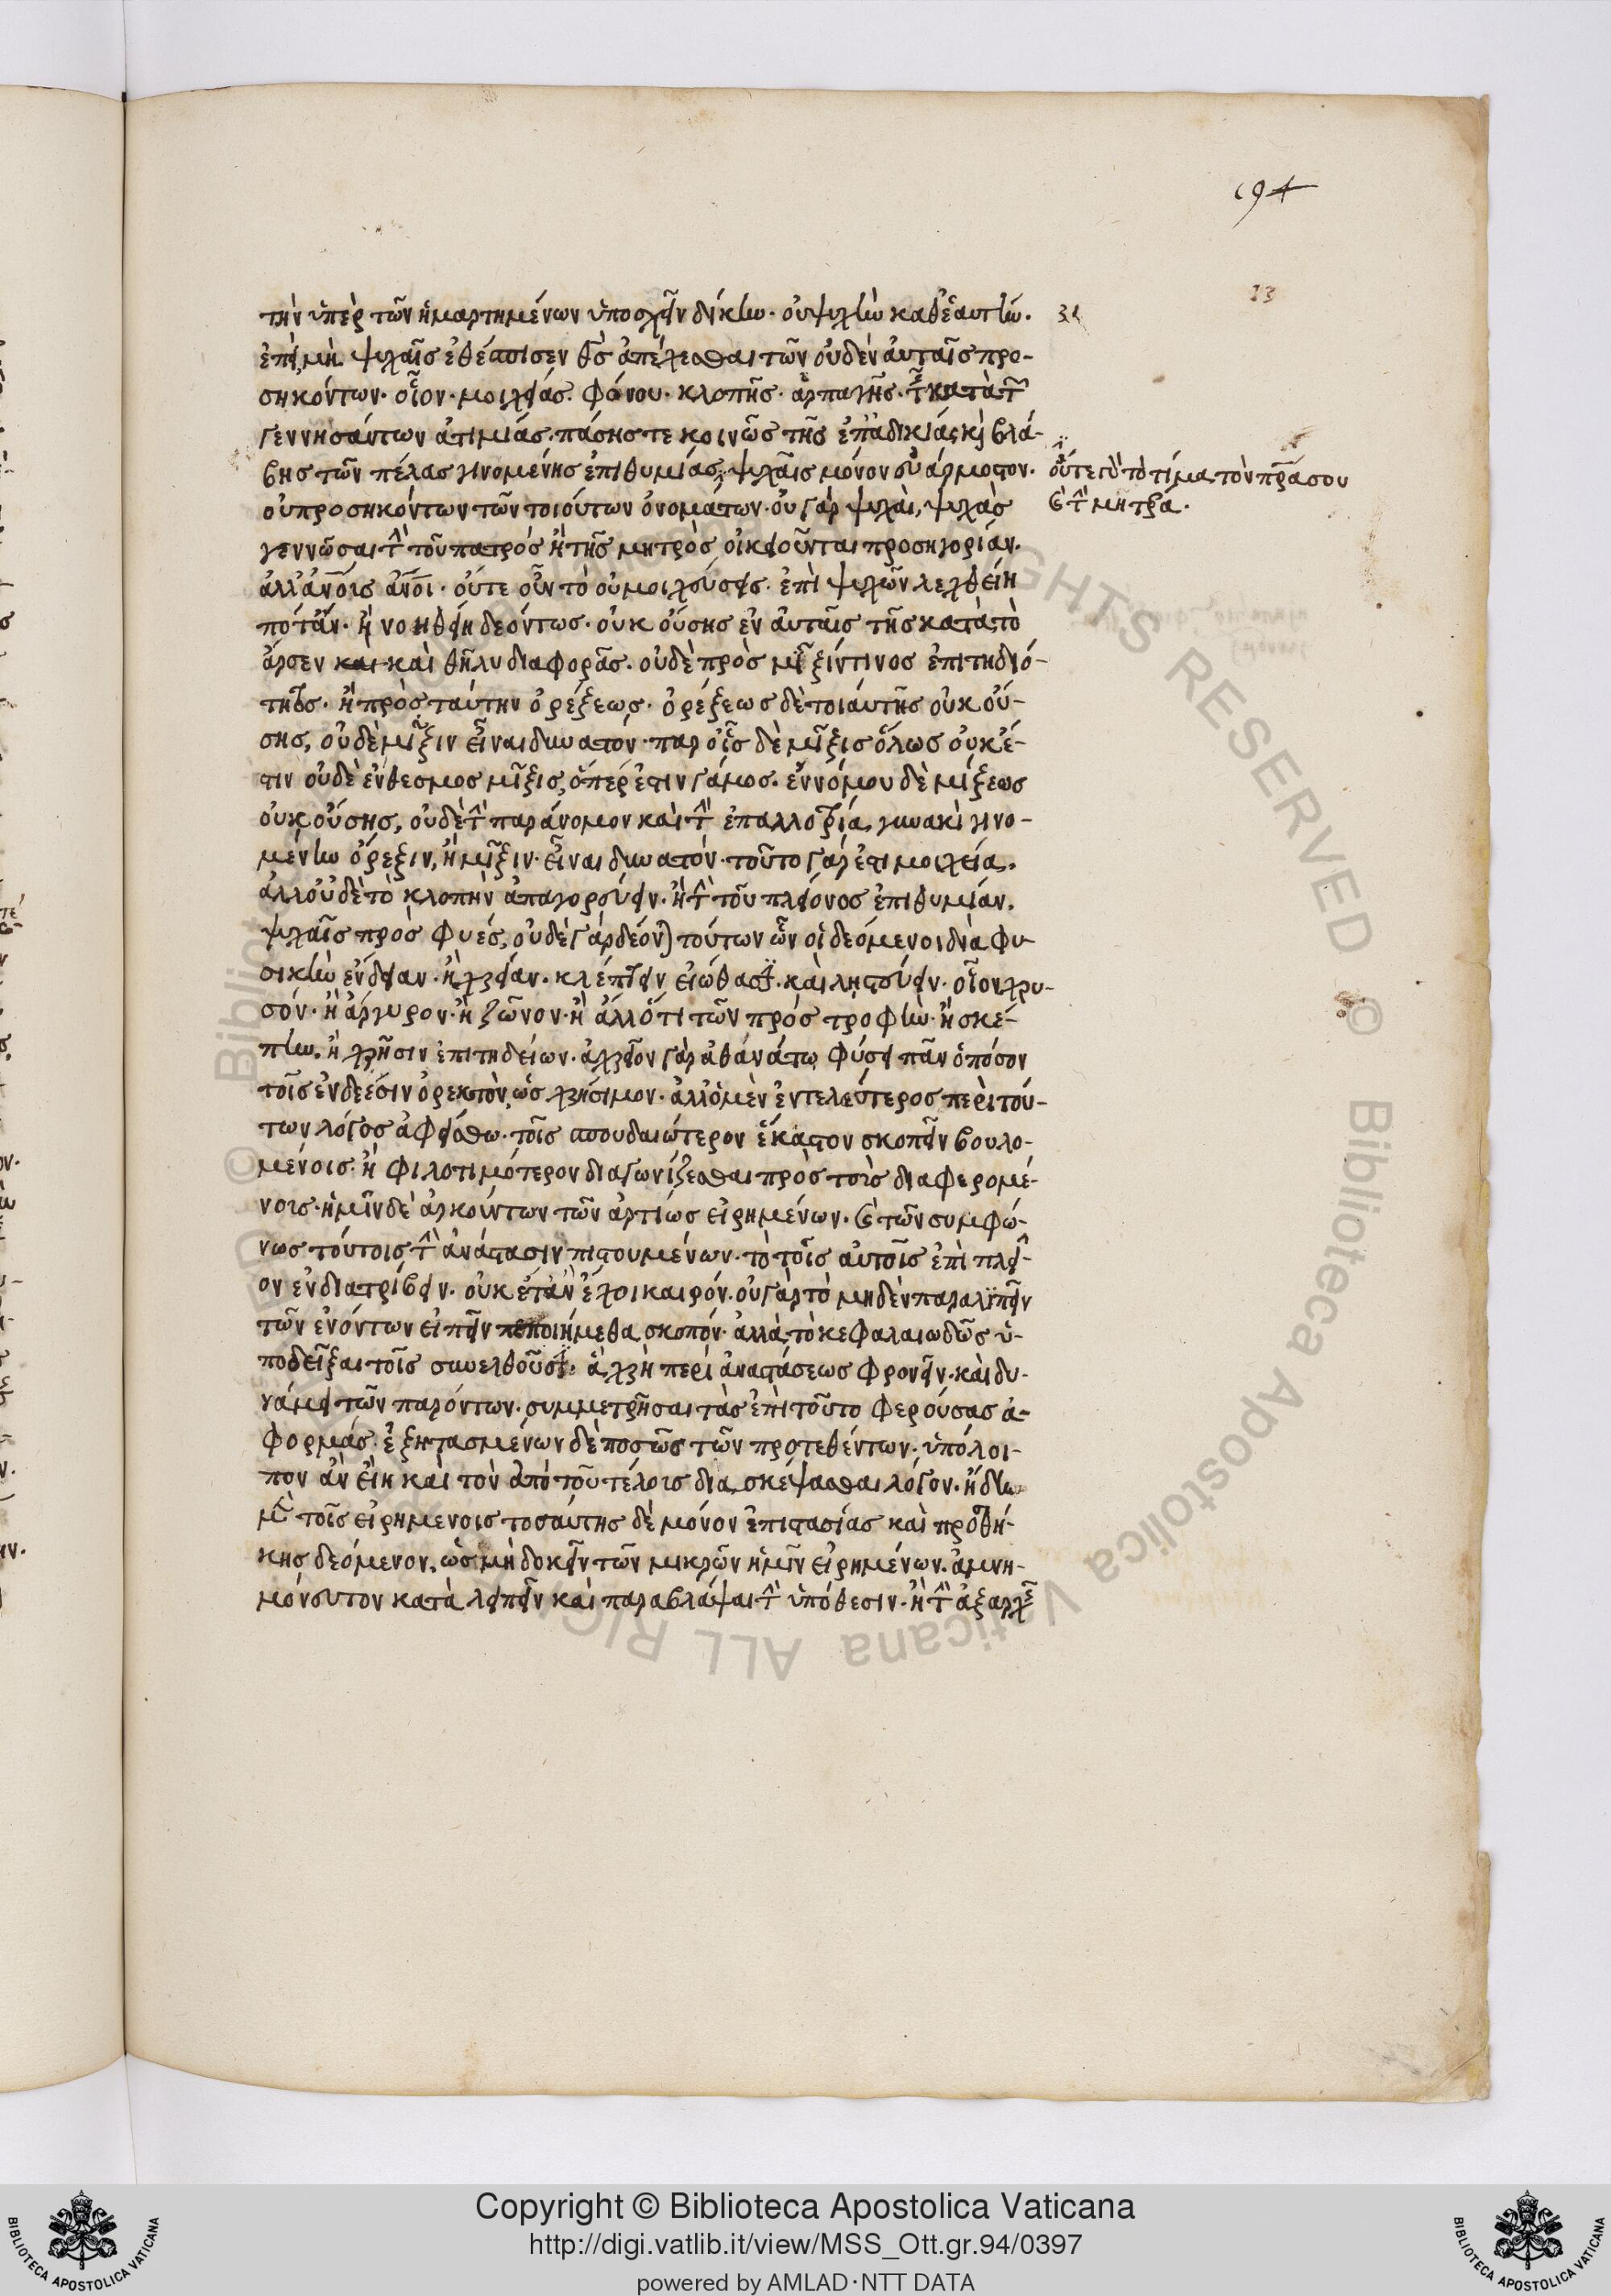 194
13
τὴν ὑπὲρ τῶν ἡμαρτημένων ὑποσχεῖν δίκην. οὐ ψυχὴν καθ' ἑαυτήν.
ἐπεὶ μὴ ψυχαῖς ἐθέσπισεν θς ἀπέχεσθαι τῶν οὐδὲν αὐταῖς προ-
σηκόντων. οἷον. μοιχείας. φόνου. κλοπῆς. ἁρπαγῆς. τῆς κατὰ τῶν
γεννησάντων ἀτιμίας. πάσης τε κοινῶς τῆς ἐπ' ἀδικίας καὶ βλά-
βης τῶν πέλας γινομένης ἐπιθυμίας, ψυχαῖς μόνον εὐάρμοστον.
οὔτε γὰρ τὸ τίμα τὸν πρα σου
καὶ τὴν μητρά.
οὐ προσηκόντων τῶν τοιούτων ὀνομάτων. οὐ γὰρ ψυχαὶ, ψυχὰς
γεννῶσαι τὴν τοῦ πατρός ἢ τῆς μητρὸς οἰκειοῦνται προσηγορίαν.
ἀλλ' ἀνοις ἀνοι. οὔτε οὖν τὸ οὐ μοιχεύσεις. ἐπὶ ψυχῶν λεχθείη
ποτ' ἄν. ἢ νοηθείη δεόντως. οὐκ οὔσης ἐν αὐταῖς τῆς κατὰ τὸ
ἄρσεν καὶ καὶ θῆλυ διαφορᾶς. οὐδὲ πρὸς μῖξίν τινος ἐπιτηδειό-
τητος. ἢ πρὸς ταύτην ὀρέξεως. ὀρέξεως δὲ τοιαύτης οὐκ οὔ-
σης, οὐδὲ μῖξιν εἶναι δυνατόν. παρ' οἷς δὲ μῖξις ὅλως οὐκ ἔ-
στιν οὐδὲ ἔνθεσμος μῖξις, ὅπερ ἐστιν γάμος. ἐννόμου δὲ μίξεως
οὐκ οὔσης, οὐδὲ τὴν παράνομον καὶ τὴν ἐπ' αλλοτρία γυναικὶ γινο-
μένην ὄρεξιν, ἢ μῖξιν. εἶναι δυνατόν. τοῦτο γάρ ἐστι μοιχεία.
ἀλλ' οὐδὲ τὸ κλοπὴν ἀπαγορεύειν. ἢ τὴν τοῦ πλείονος ἐπιθυμίαν.
ψυχαῖς προσφυές, οὐδὲ γὰρ δέονται τούτων ὧν οἱ δεόμενοι διὰ φυ-
σικὴν ἔνδειαν. ἢ χρείαν. κλέπτειν εἰώθασιν. καὶ λῃστεύειν. οἷον χρυ-
σόν. ἢ ἄργυρον. ἢ ζῶον. ἢ ἄλλό τι τῶν πρός τροφὴν. ἢ σκέ-
πην. ἢ χρῆσιν ἐπιτηδείων. ἀχρεῖον γὰρ ἀθανάτω φύσει πᾶν ὁπόσον
τοῖς ἐνδεέσιν ὀρεκτὸν, ὡς χρήσιμον. ἀλλ' ὁ μὲν ἐντελέστερος περὶ τού-
των λόγος ἀφείσθω. τοῖς σπουδαιότερον ἕκαστον σκοπεῖν βουλο-
μένοις. ἢ φιλοτιμότερον διαγωνίζεσθαι πρὸς τοὺς διαφερομέ-
νους. ἡμῖν δὲ ἀρκούντων τῶν ἀρτίως εἰρημένων. καὶ τῶν συμφώ-
νως τούτοις τὴν ἀνάστασιν πιστουμένων. τὸ τοῖς αὐτοῖς ἐπὶ πλεῖ-
ον ἐνδιατρίβειν. οὐκέτ' ἂν ἔχοι καιρόν. οὐ γὰρ τὸ μηδὲν παραλιπεῖν
τῶν ἐνόντων εἰπεῖν πεποιήμεθα σκοπόν. ἀλλὰ τὸ κεφαλαιωδῶς ὑ-
ποδεῖξαι τοῖς συνελθοῦσιν. ἃ χρὴ περὶ ἀναστάσεως φρονεῖν. καὶ δυ-
νάμει τῶν παρόντων. συμμετρῆσαι τὰς ἐπὶ τοῦτο φερούσας ἀ-
φορμάς. ἐξητασμένων δὲ ποσῶς τῶν προτεθέντων. ὑπόλοι-
πον ἂν εἴη καὶ τὸν ἀπὸ τοῦ τέλους διασκέψασθαι λόγον. ἤδη
μὲν τοῖς εἰρημένοις τοσαύτης δὲ μόνον ἐπιστασίας καὶ προσθή-
κης δεόμενον. ὡς μὴ δοκεῖν τῶν μικρῶν ἡμῖν εἰρημένων. ἀμνη-
μόνευτον καταλειπεῖν καὶ παραβλάψαι τὴν ὑπόθεσιν. ἢ τὴν ἐξ ἀρχῆς
© Biblioteca Apostolica Vaticana ALL RIGHTS RESERVED
Copyright © Biblioteca Apostolica Vaticana
http://digi.vatlib.it/view/MSS_Ott.gr.94/0397
powered by AMLAD·NTT DATA
BIBLIOTECA APOSTOLICA VATICANA
BIBLIOTECA APOSTOLICA VATICANA